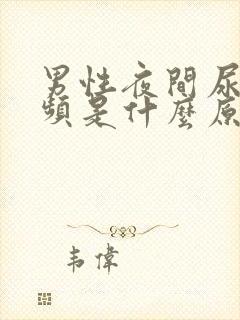 男性夜間尿
頻是什麼原
韦偉